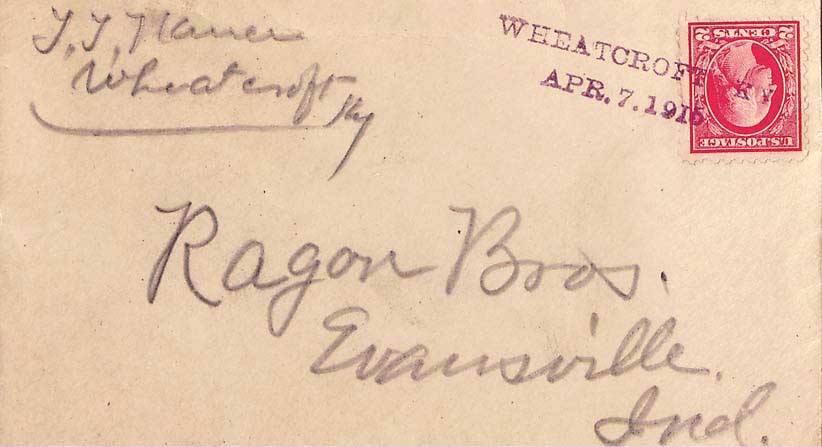 Wheatcroft
Ky
WHEATCROFT, KY
APR. 7. 1915
U.S. POSTAGE
2 CENTS 2
Ragon Bros.
Evansville,
Ind.